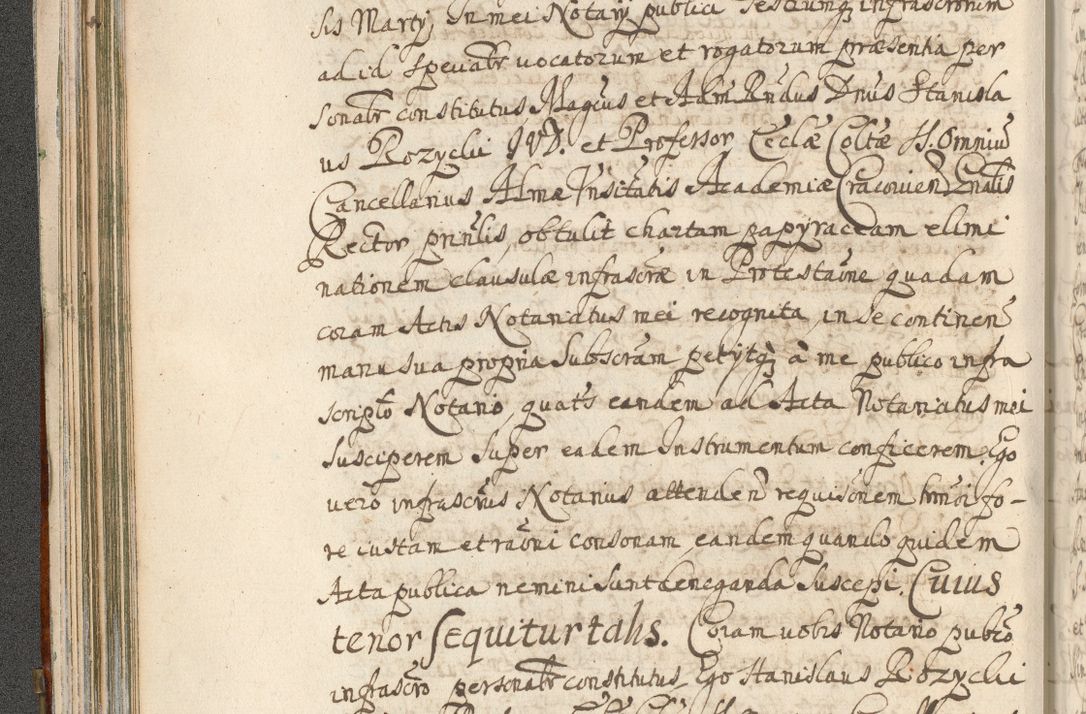 sis Martij, In mei Notarij publici Testiumq; infrascriptorum
ad id speciatr vocatorum et rogatorum præsentia per
sonatr constitutus Magcus et Adm Rndus Dnus Stanisla
us Rozyclii JVD. et Professor, Ecclæ Coltæ SS. Omniu
Cancellarius Almæ Vnsitatis Academiæ Cracovien Gnalis
Rector prinlis, obtulit chartam papyraceam ellmi
nationem clausulæ infrascræ in Protestaõne quadam
coram Actis Notariatus mei recognita, in se continen
manu sua propria subscram petijtq; à me publico infra
scripto Notario, quats eandem ad Acta Notariatus mei
susciperem super eadem Instrumentum conficerem. Ego
vero infrascrus Notarius attenden requisonem hmoi fo-
re iustam et raoni consonam, eandem quando quidem
Acta publica nemini sunt deneganda suscepi. Cuius
tenor sequitur talis. Coram vobis Notario publco
infrascro personatr constitutus Ego Stanislaus Rozyclii